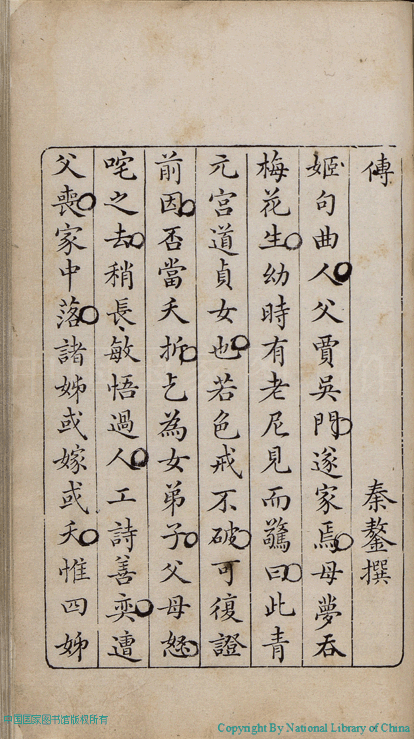 傳
秦鏊撰
姬句曲人父賈吳門遂家焉母夢吞
梅花生幼時有老尼見而驚曰此青
元宮道貞女也若色戒不破可復證
前因否當夭折乞為女弟子父母怒
咤之去稍長敏悟過人工詩善奕遭
父喪家中落諸姊或嫁或夭惟四姊
中国国家图书馆版权所有
Copyright By National Library of China